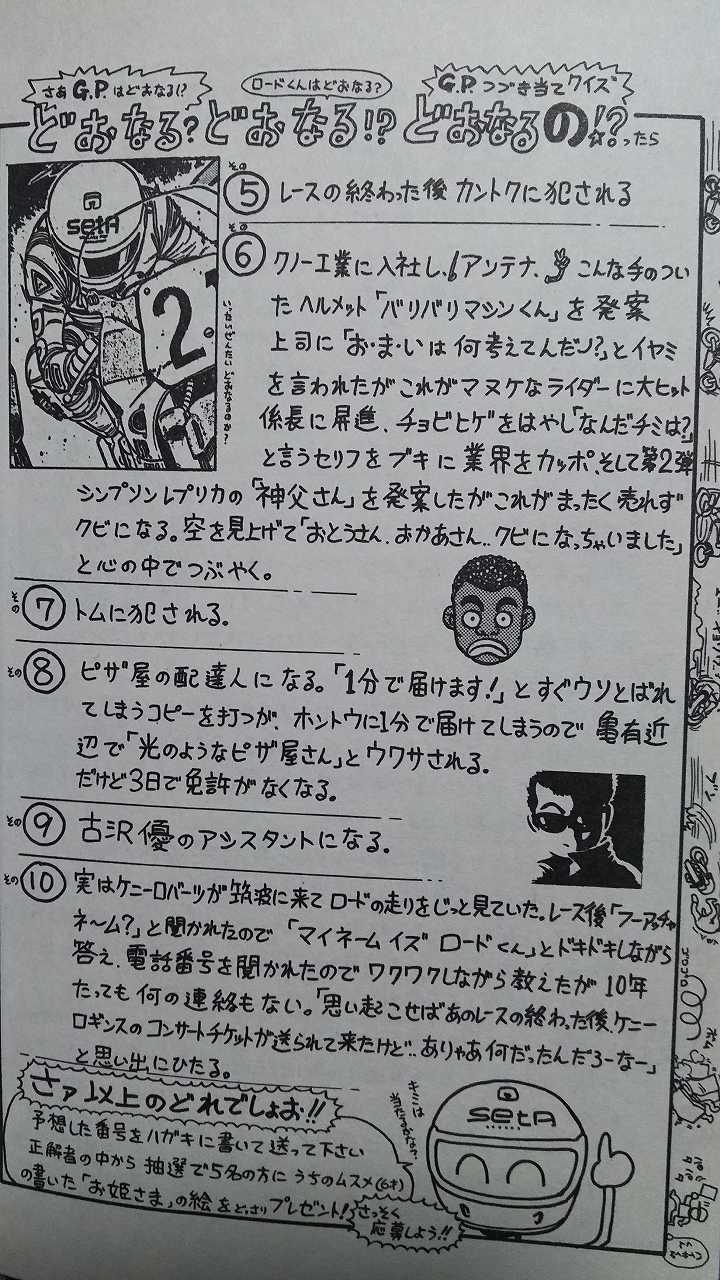 さあG.P.はどおなる!?
ロードくんはどおなる?
G.P.つづき当てクイズ
どおなる?どおなる!?どおなるの!?ったら
setA
2
いったいぜんたいどおなるのか?
その⑤ レースの終わった後カントクに犯される
その⑥ クノー工業に入社し、アンテナ、こんな手のつい
たヘルメット「バリバリマシンくん」を発案
上司に「お・ま・いは何考えてんだノ?」とイヤミ
を言われたがこれがマヌケなライダーに大ヒット
係長に昇進、チョビヒゲをはやし「なんだチミは?」
と言うセリフをブキに業界をカッポ、そして第2弾
シンプソンレプリカの「神父さん」を発案したがこれがまったく売れず
クビになる。空を見上げて「おとうさん、おかあさん..クビになっちゃいました」
と心の中でつぶやく。
その⑦ トムに犯される。
その⑧ ピザ屋の配達人になる。「1分で届けます!」とすぐウソとばれ
てしまうコピーを打つが、ホントウに1分で届けてしまうので亀有近
辺で「光のようなピザ屋さん」とウワサされる。
だけど3日で免許がなくなる。
その⑨ 古沢優のアシスタントになる。
その⑩ 実はケニーロバーツが筑波に来てロードの走りをじっと見ていた。レース後「フーアッチャ
ネ〜ム?」と聞かれたので「マイネームイズロードくん」とドキドキしながら
答え、電話番号を聞かれたのでワクワクしながら教えたが10年
たっても何の連絡もない。「思い起こせばあのレースの終わった後、ケニー
ロギンスのコンサートチケットが送られて来たけど..ありゃあ何だったんだろーなー」
と思い出にひたる。
さァ以上のどれでしょお!!
予想した番号をハガキに書いて送って下さい
正解者の中から抽選で5名の方にうちのムスメ(6才)
の書いた「お姫さま」の絵をどっさりプレゼント!
さっそく
応募しよう!!
キミは
setA